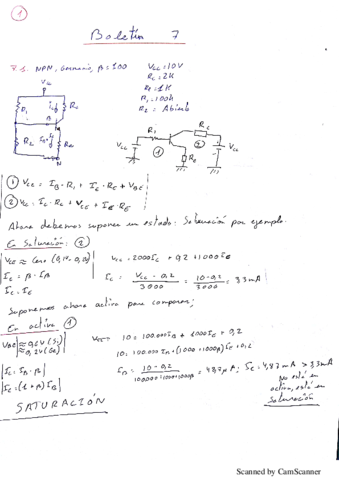 1
Boletín 7
7.1. NPN, Germanio, β=100
Vcc=10V
Rc=2K
RE=1K
R1=100k
R2=Abierto
Vcc
R1
Rc
B
R2
RE
N
Rc
R1
Vcc
1
2
Vcc
RE
① Vcc = IB·R1 + IE·RE + VBE
② Vcc = Ic·Rc + VCE + IE·RE
Ahora debemos suponer un estado: Saturación por ejemplo.
En Saturación: ②
Ic = β·IB
Ic ≈ IE
Vcc = 2000Ic + 0,2 + 1000IE
Ic = Vcc - 0,2 / 3000 = 10-0,2 / 3000 = 3,3 mA
Suponemos ahora activa para comparar;
En activa ①
VBE ≈ 0,6V (Si)
≈ 0,2V (Ge)
Vcc = 10 = 100.000IB + 1000IE + 0,2
10 = 100.000IB + (1000 + 1000β)IB + 0,2
Ic = IB·β
IE = (1+β)IB
IB = 10-0,2 / 100000+1000+1000β = 48,7μA; Ic = 4,87 mA > 3,3 mA
No está en
activa, está en
saturación
SATURACIÓN
Scanned by CamScanner